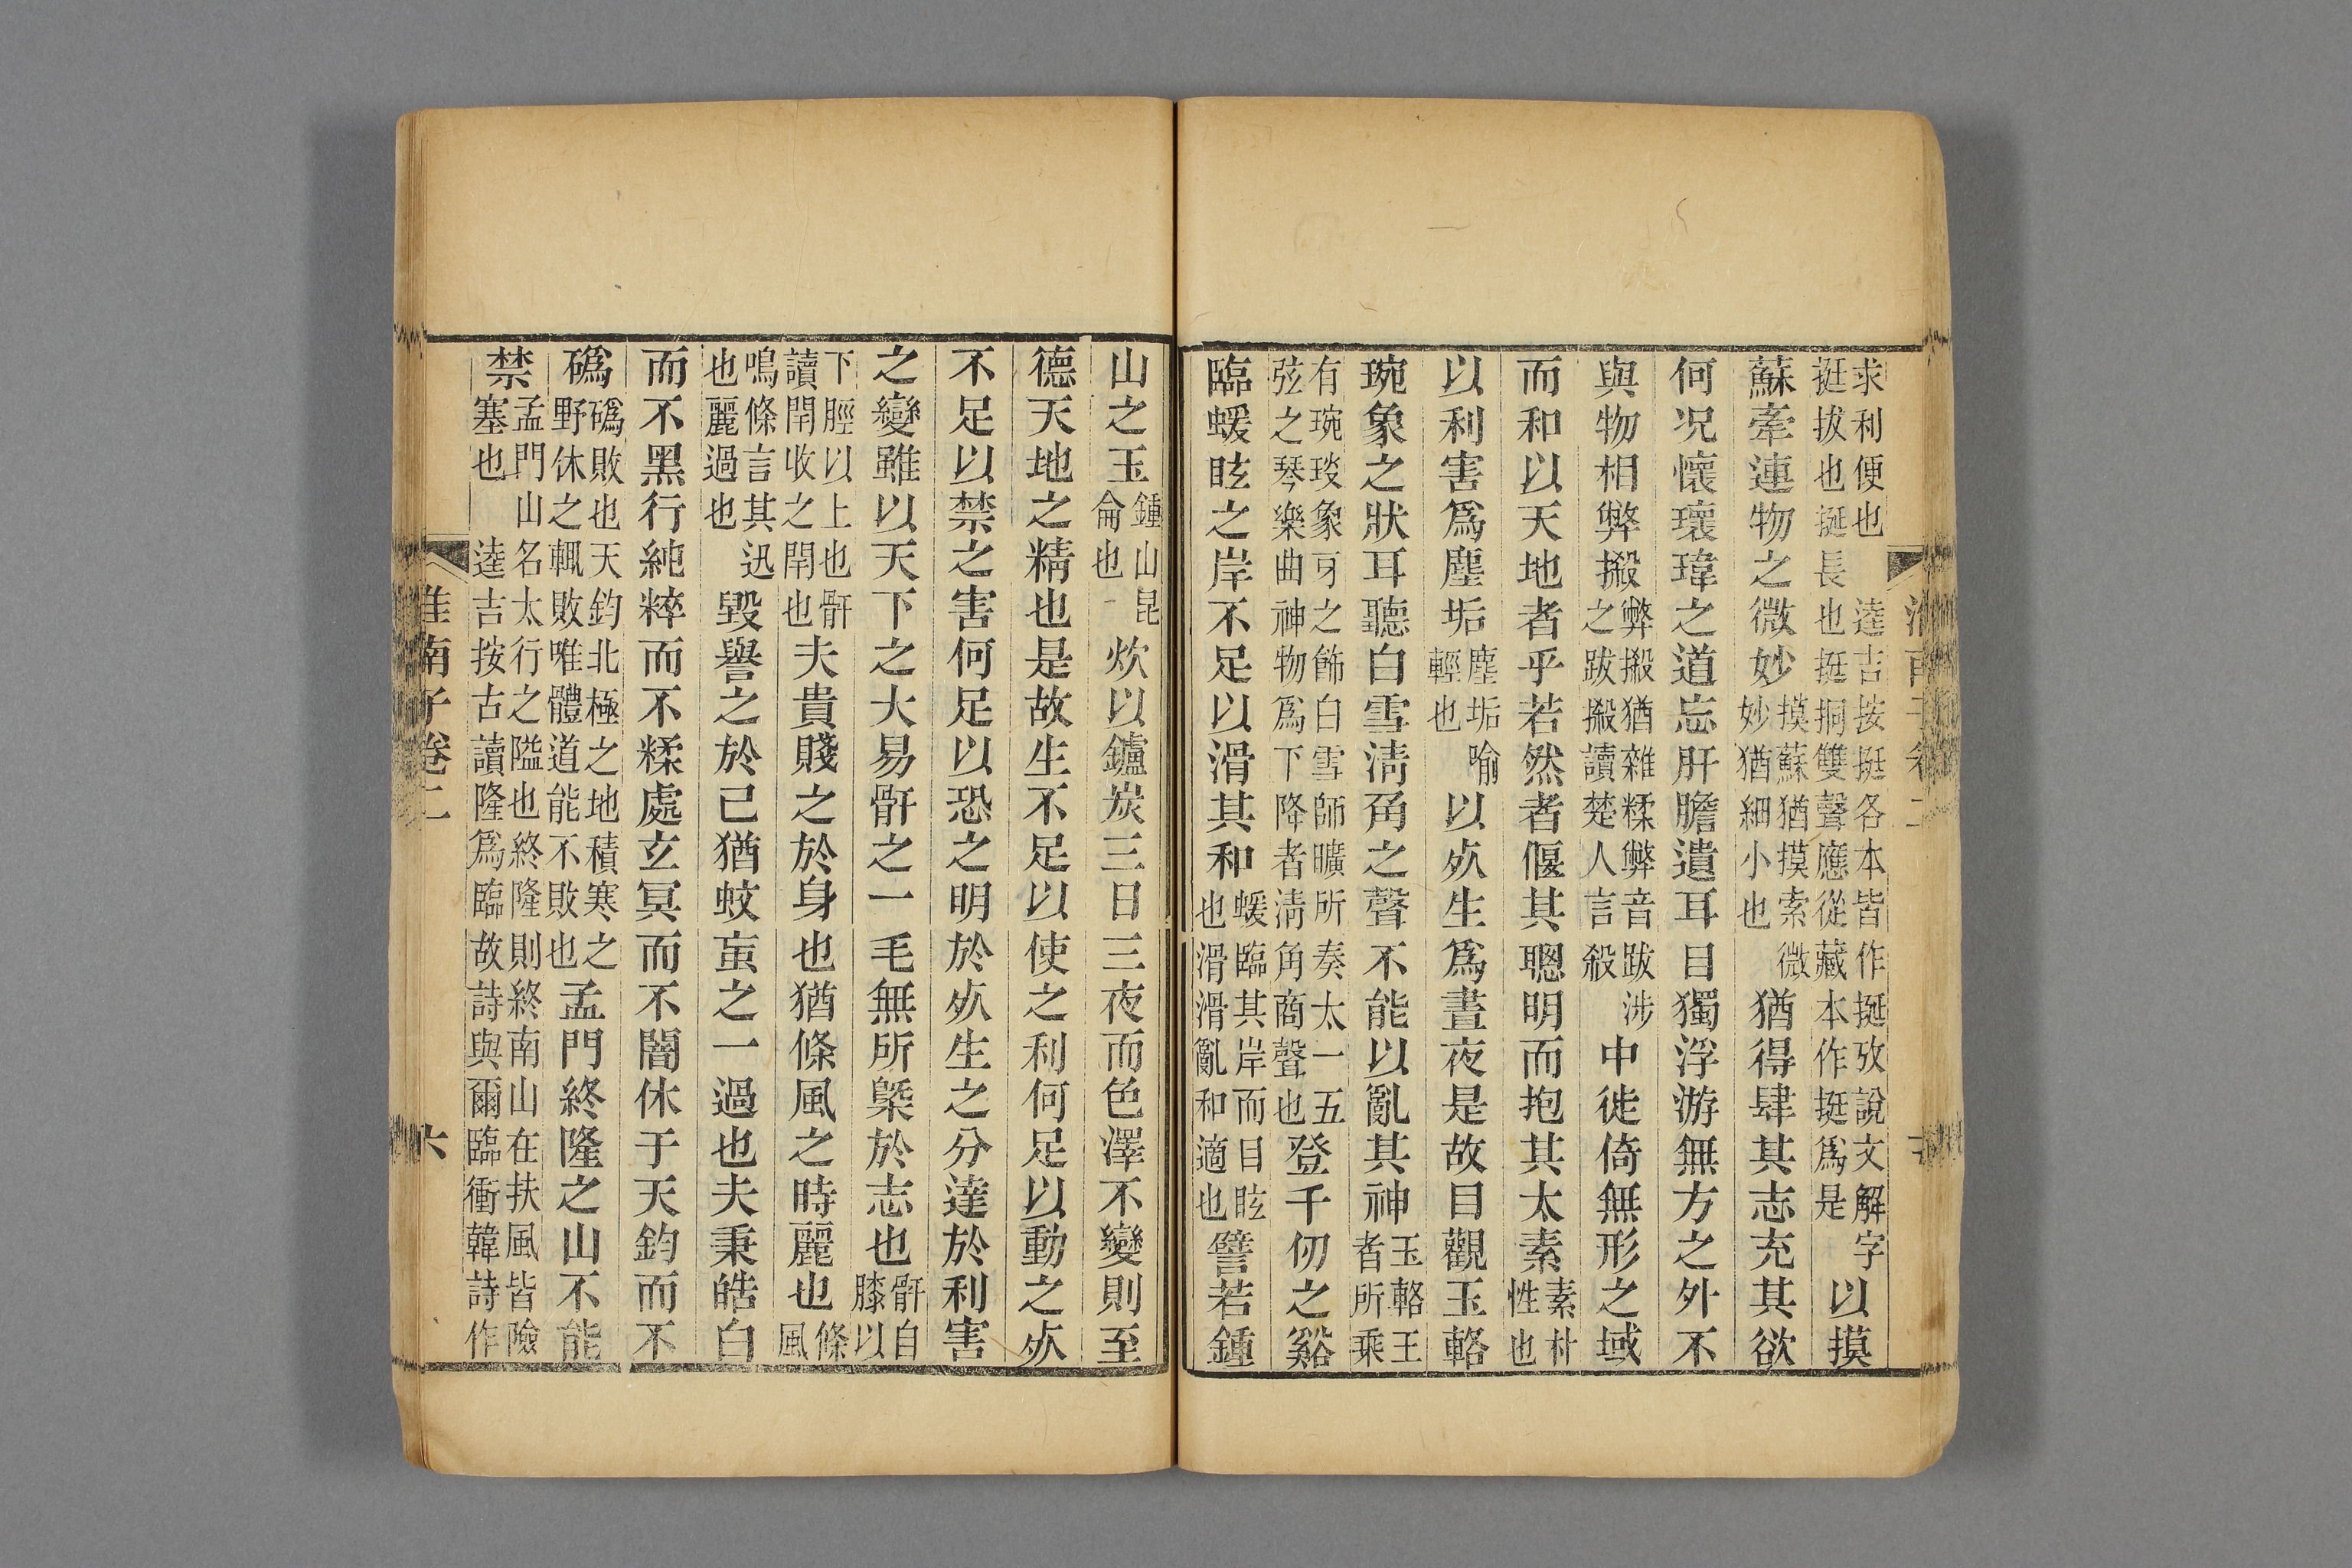 求利便也　逵吉按挺各本皆作挻攷說文解字挺拔也挻長也挺挏雙聲應從藏本作挺爲是以摸
蘇牽連物之微妙摸蘇猶摸索微妙猶細小也猶得肆其志充其欲
何况懷瓌瑋之道忘肝膽遺耳目獨浮游無方之外不
與物相弊摋弊摋猶雜糅弊音跋涉之跋摋讀楚人言殺中徙倚無形之域
而和以天地者乎若然者偃其聰明而抱其太素素朴性也
以利害爲塵垢塵垢喻輕也以死生爲晝夜是故目觀玉輅
琬象之狀耳聽白雪清角之聲不能以亂其神玉輅王者所乘
有琬琰象牙之飾白雪師曠所奏太一五弦之琴樂曲神物爲下降者清角商聲也登千仞之谿
臨蝯眩之岸不足以滑其和蝯臨其岸而目眩也滑滑亂和適也譬若鍾
山之玉鍾山昆侖也炊以鑪炭三日三夜而色澤不變則至
德天地之精也是故生不足以使之利何足以動之死
不足以禁之害何足以恐之明於死生之分達於利害
之變雖以天下之大易骭之一毛無所槩於志也骭自膝以
下脛以上也骭讀閈收之閈也夫貴賤之於身也猶條風之時麗也條風
鳴條言其迅也麗過也毀譽之於已猶蚊䖟之一過也夫秉皓白
而不黑行純粹而不糅處玄冥而不闇休于天鈞而不
䃣䃣敗也天鈞北極之地積寒之野休之輒敗唯體道能不敗也孟門終隆之山不能
禁孟門山名太行之隘也終隆則終南山在扶風皆險塞也　逵吉按古讀隆爲臨故詩與爾臨衝韓詩作
淮南子卷二　六